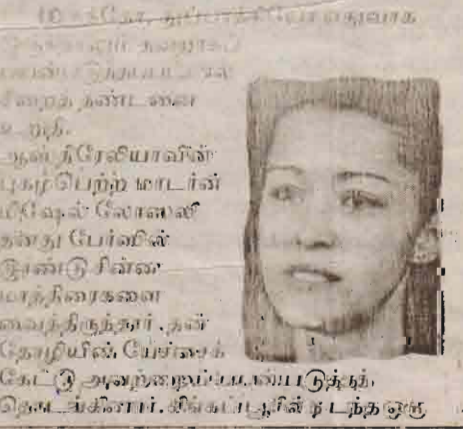 எதுவாக
தவறாகப்
சிறைத் தண்டனை
உறுதி.
ஆஸ்திரேலியாவின்
புகழ்பெற்ற மாடர்ன்
மிஷேல் லோஸலி
தனது பேர்ஸில்
இரண்டு சின்ன
மாத்திரைகளை
வைத்திருந்தார். தன்
தோழியின் பேச்சைக்
கேட்டு அவற்றைப் பயன்படுத்தத்
தொடங்கினார். சிங்கப்பூரில் நடந்த ஒரு